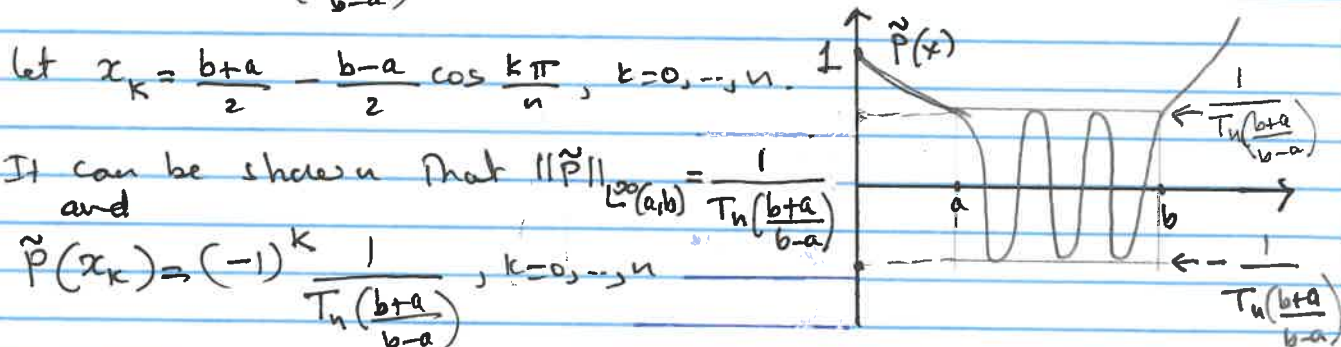 b-a
let x_k = \frac{b+a}{2} - \frac{b-a}{2} cos \frac{kπ}{n}, k=0,--,n.
It can be shown that ||P̃||_{L^∞(a,b)} = \frac{1}{T_n(\frac{b+a}{b-a})}
and
P̃(x_k) = (-1)^k \frac{1}{T_n(\frac{b+a}{b-a})}, k=0,--,n
P̃(x)
1
← \frac{1}{T_n(\frac{b+a}{b-a})}
a
b
← - \frac{1}{T_n(\frac{b+a}{b-a})}